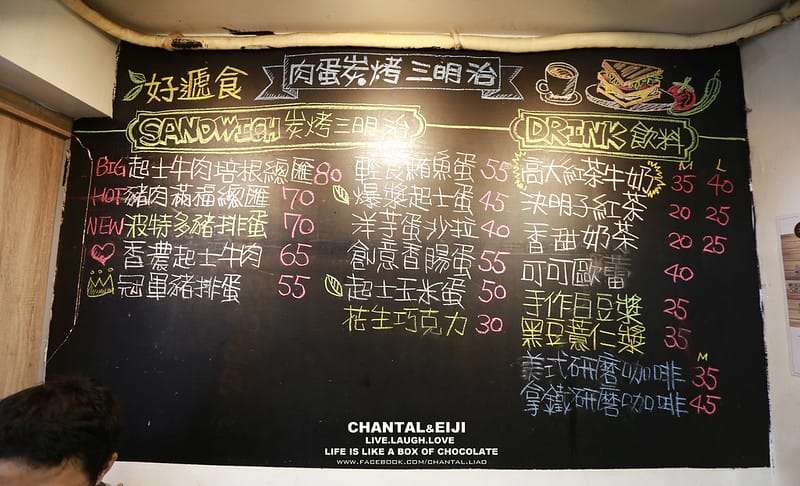 好遞食
肉蛋炭烤三明治
SANDWICH 炭烤三明治
BIG 起士牛肉培根總匯 80
HOT 豬肉滿福總匯 70
NEW 波特多豬排蛋 70
香濃起士牛肉 65
冠軍豬排蛋 55
輕食鮪魚蛋 55
爆漿起士蛋 45
洋芋蛋沙拉 40
創意香腸蛋 55
起士玉米蛋 50
花生巧克力 30
DRINK 飲料
M L
高大紅茶牛奶 35 40
決明子紅茶 20 25
香甜奶茶 20 25
可可歐蕾 40
手作白豆漿 25
黑豆薏仁漿 35
M
美式研磨咖啡 35
拿鐵研磨咖啡 45
CHANTAL&EIJI
LIVE.LAUGH.LOVE
LIFE IS LIKE A BOX OF CHOCOLATE
WWW.FACEBOOK.COM/CHANTAL.LIAO